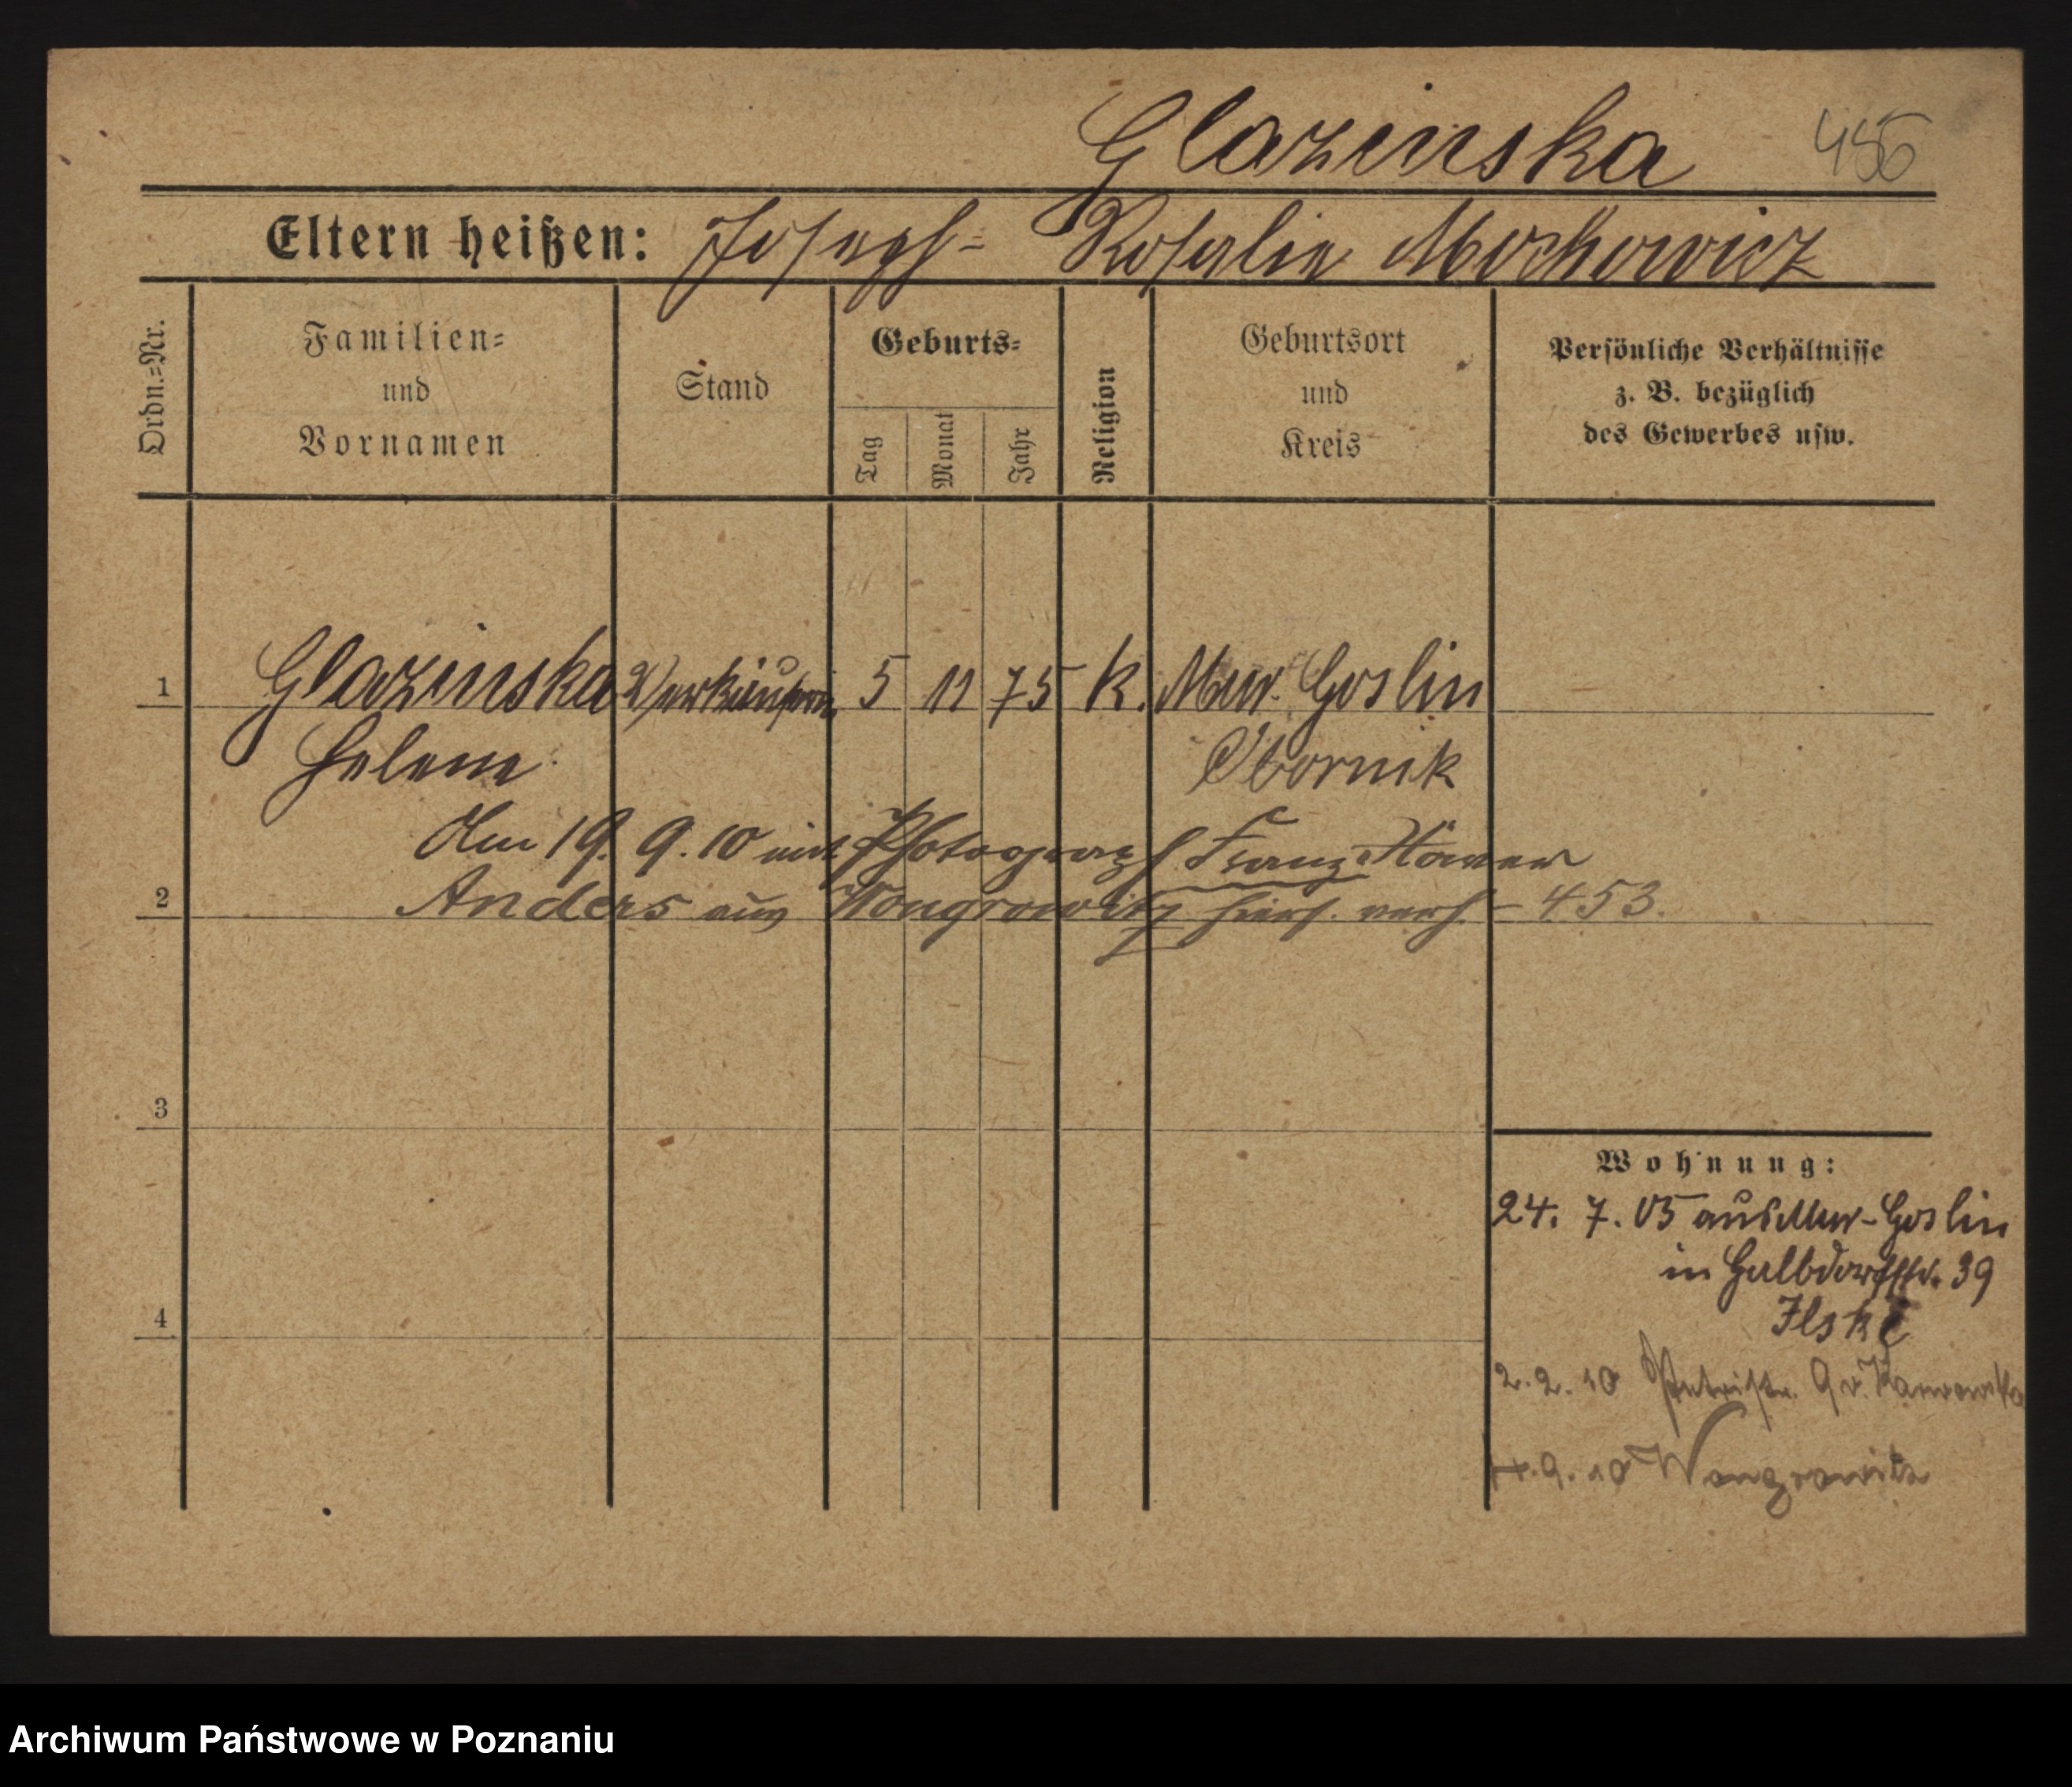 Glazinska 456
Eltern heißen: Joseph - Rosalie Mockowicz
Ordn.=Nr.
Familien=
und
Vornamen
Stand
Geburts=
Tag
Monat
Jahr
Religion
Geburtsort
und
Kreis
Persönliche Verhältnisse
z. B. bezüglich
des Gewerbes usw.
1 Glazinska Verkäuferin 5 11 75 k. Mur. Goslin
Helene Obornik
Am 19. 9. 10 mit Photograph Franz Xaver
2 Anders aus Wongrowitz hier verh. - 453.
3
Wohnung:
24. 7. 05 aus Mur-Goslin
in Halbdorfstr. 39
4 Ilski
2. 2. 10 Petristr. 9 v.
9. 10 Wongrowitz
Archiwum Państwowe w Poznaniu